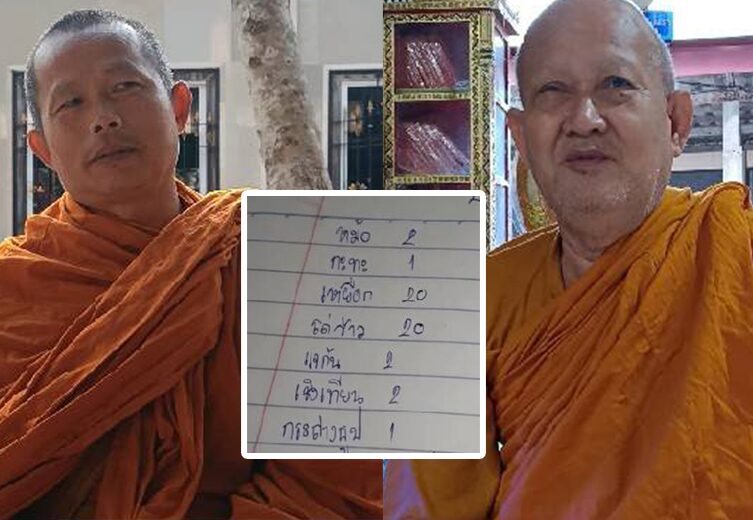 หม้อ 2
กะทะ 1
เหยือก 20
โต่ข้าว 20
แจกัน 2
เชิงเทียน 2
กระถางธูป 1